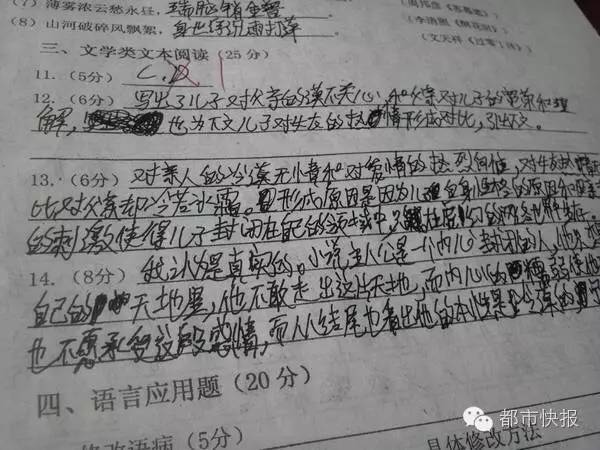 (7) 薄雾浓云愁永昼,瑞脑销金兽
(8) 山河破碎风飘絮,身世浮沉雨打萍
(李清照《醉花阴》)
(文天祥《过零丁洋》)
三、文学类文本阅读(25分)
11.(5分) C.D
12.(6分) 写出了儿子对父亲的漠不关心,和父亲对儿子的宽容和理
解,也为下文儿子对失友的热情形成对比,引出下文。
13.(6分) 对亲人的冷漠无情和对爱情的热烈自值,对失友
比对父亲却冷若冰霜。形成原因是因为儿子自身性格的原因和
的刺激使得儿子封闭在自己的领域中,只能在虚幻的网络世界生存。
14.(8分) 我认为是真实的。小说主人公是一个内心封闭的人,他
自己的天地里,他不敢走出这片天地,而内心的懦弱使他
也不愿承受这段感情,而从小结尾也看出他的本性是冷漠的
四、语言应用题(20分)
修改语病(5分)
具体修改方法
都市快报